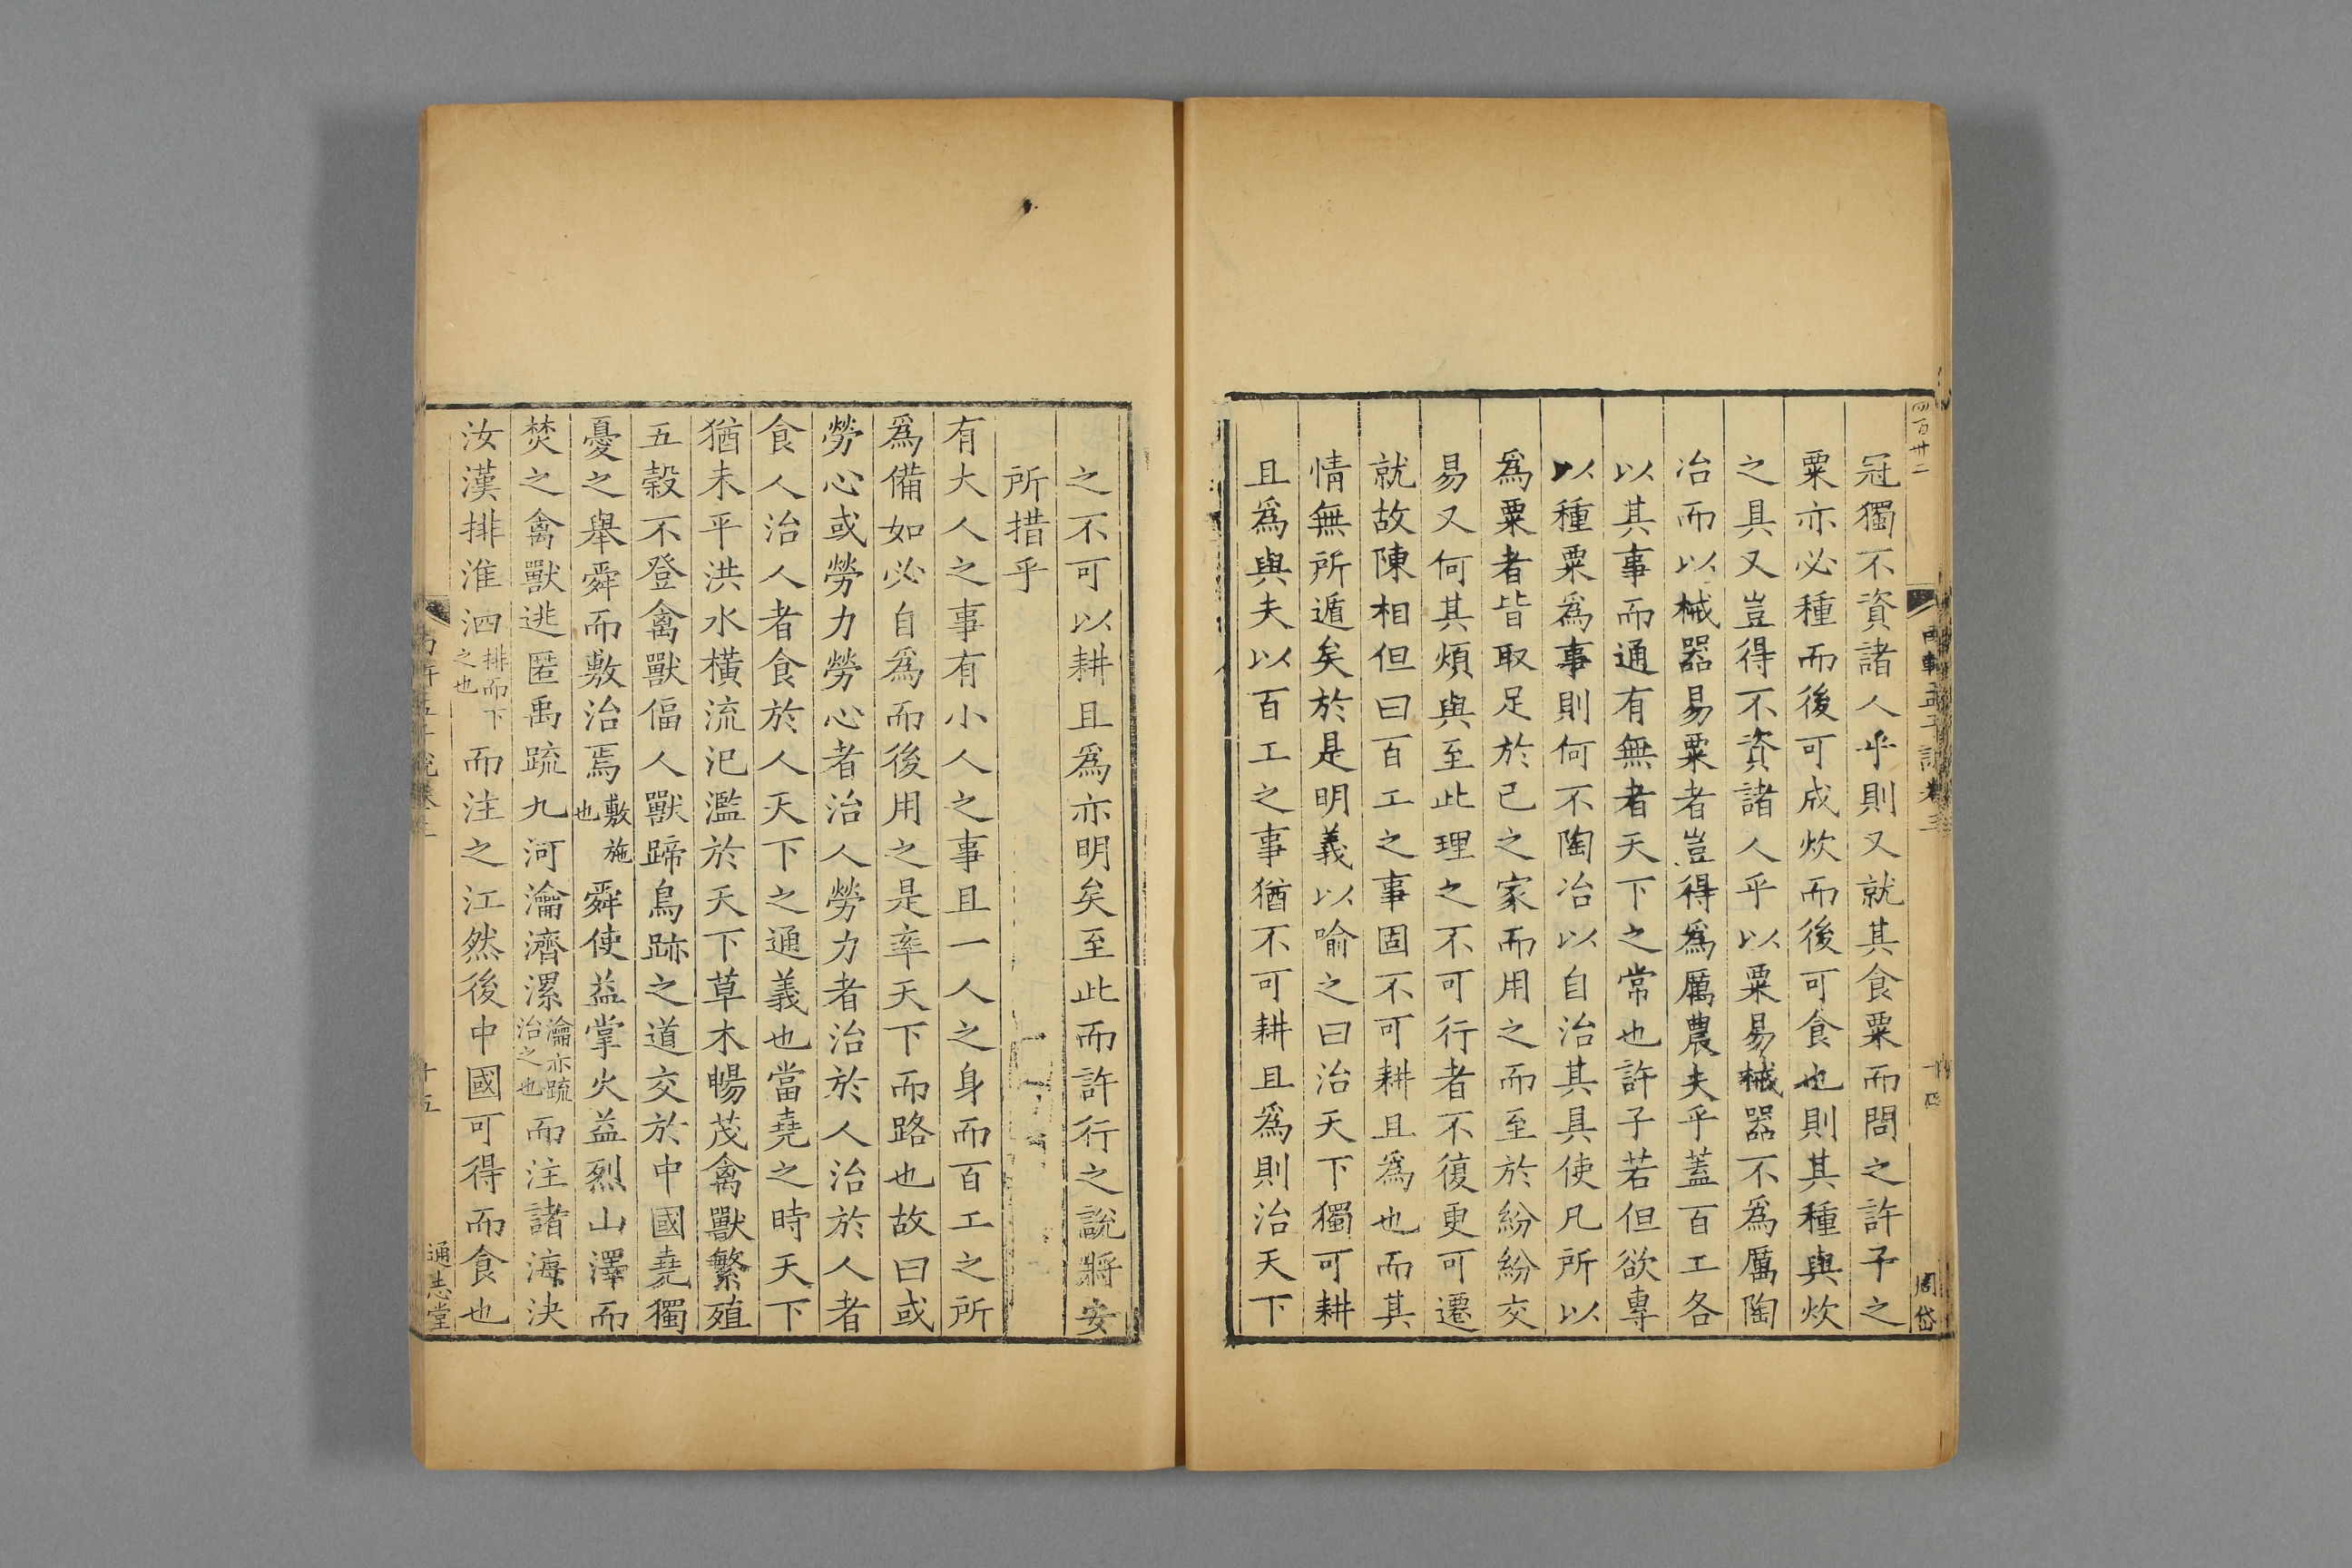 四百卅二
南軒孟子說卷三
十四
周岱
冠獨不資諸人乎則又就其食粟而問之許子之
粟亦必種而後可成炊而後可食也則其種與炊
之具又豈得不資諸人乎以粟易械器不為厲陶
冶而以械器易粟者豈得爲厲農夫乎蓋百工各
以其事而通有無者天下之常也許子若但欲專
以種粟爲事則何不陶冶以自治其具使凡所以
爲粟者皆取足於己之家而用之而至於紛紛交
易又何其煩與至此理之不可行者不復更可遷
就故陳相但曰百工之事固不可耕且爲也而其
情無所遁矣於是明義以喻之曰治天下獨可耕
且爲與夫以百工之事猶不可耕且爲則治天下
之不可以耕且爲亦明矣至此而許行之說將安
所措乎
有大人之事有小人之事且一人之身而百工之所
爲備如必自爲而後用之是率天下而路也故曰或
勞心或勞力勞心者治人勞力者治於人治於人者
食人治人者食於人天下之通義也當堯之時天下
猶未平洪水橫流氾濫於天下草木暢茂禽獸繁殖
五穀不登禽獸偪人獸蹄鳥跡之道交於中國堯獨
憂之舉舜而敷治焉敷施也舜使益掌火益烈山澤而
焚之禽獸逃匿禹疏九河瀹濟漯瀹亦疏治之也而注諸海決
汝漢排淮泗排而下之也而注之江然後中國可得而食也
十五
通志堂